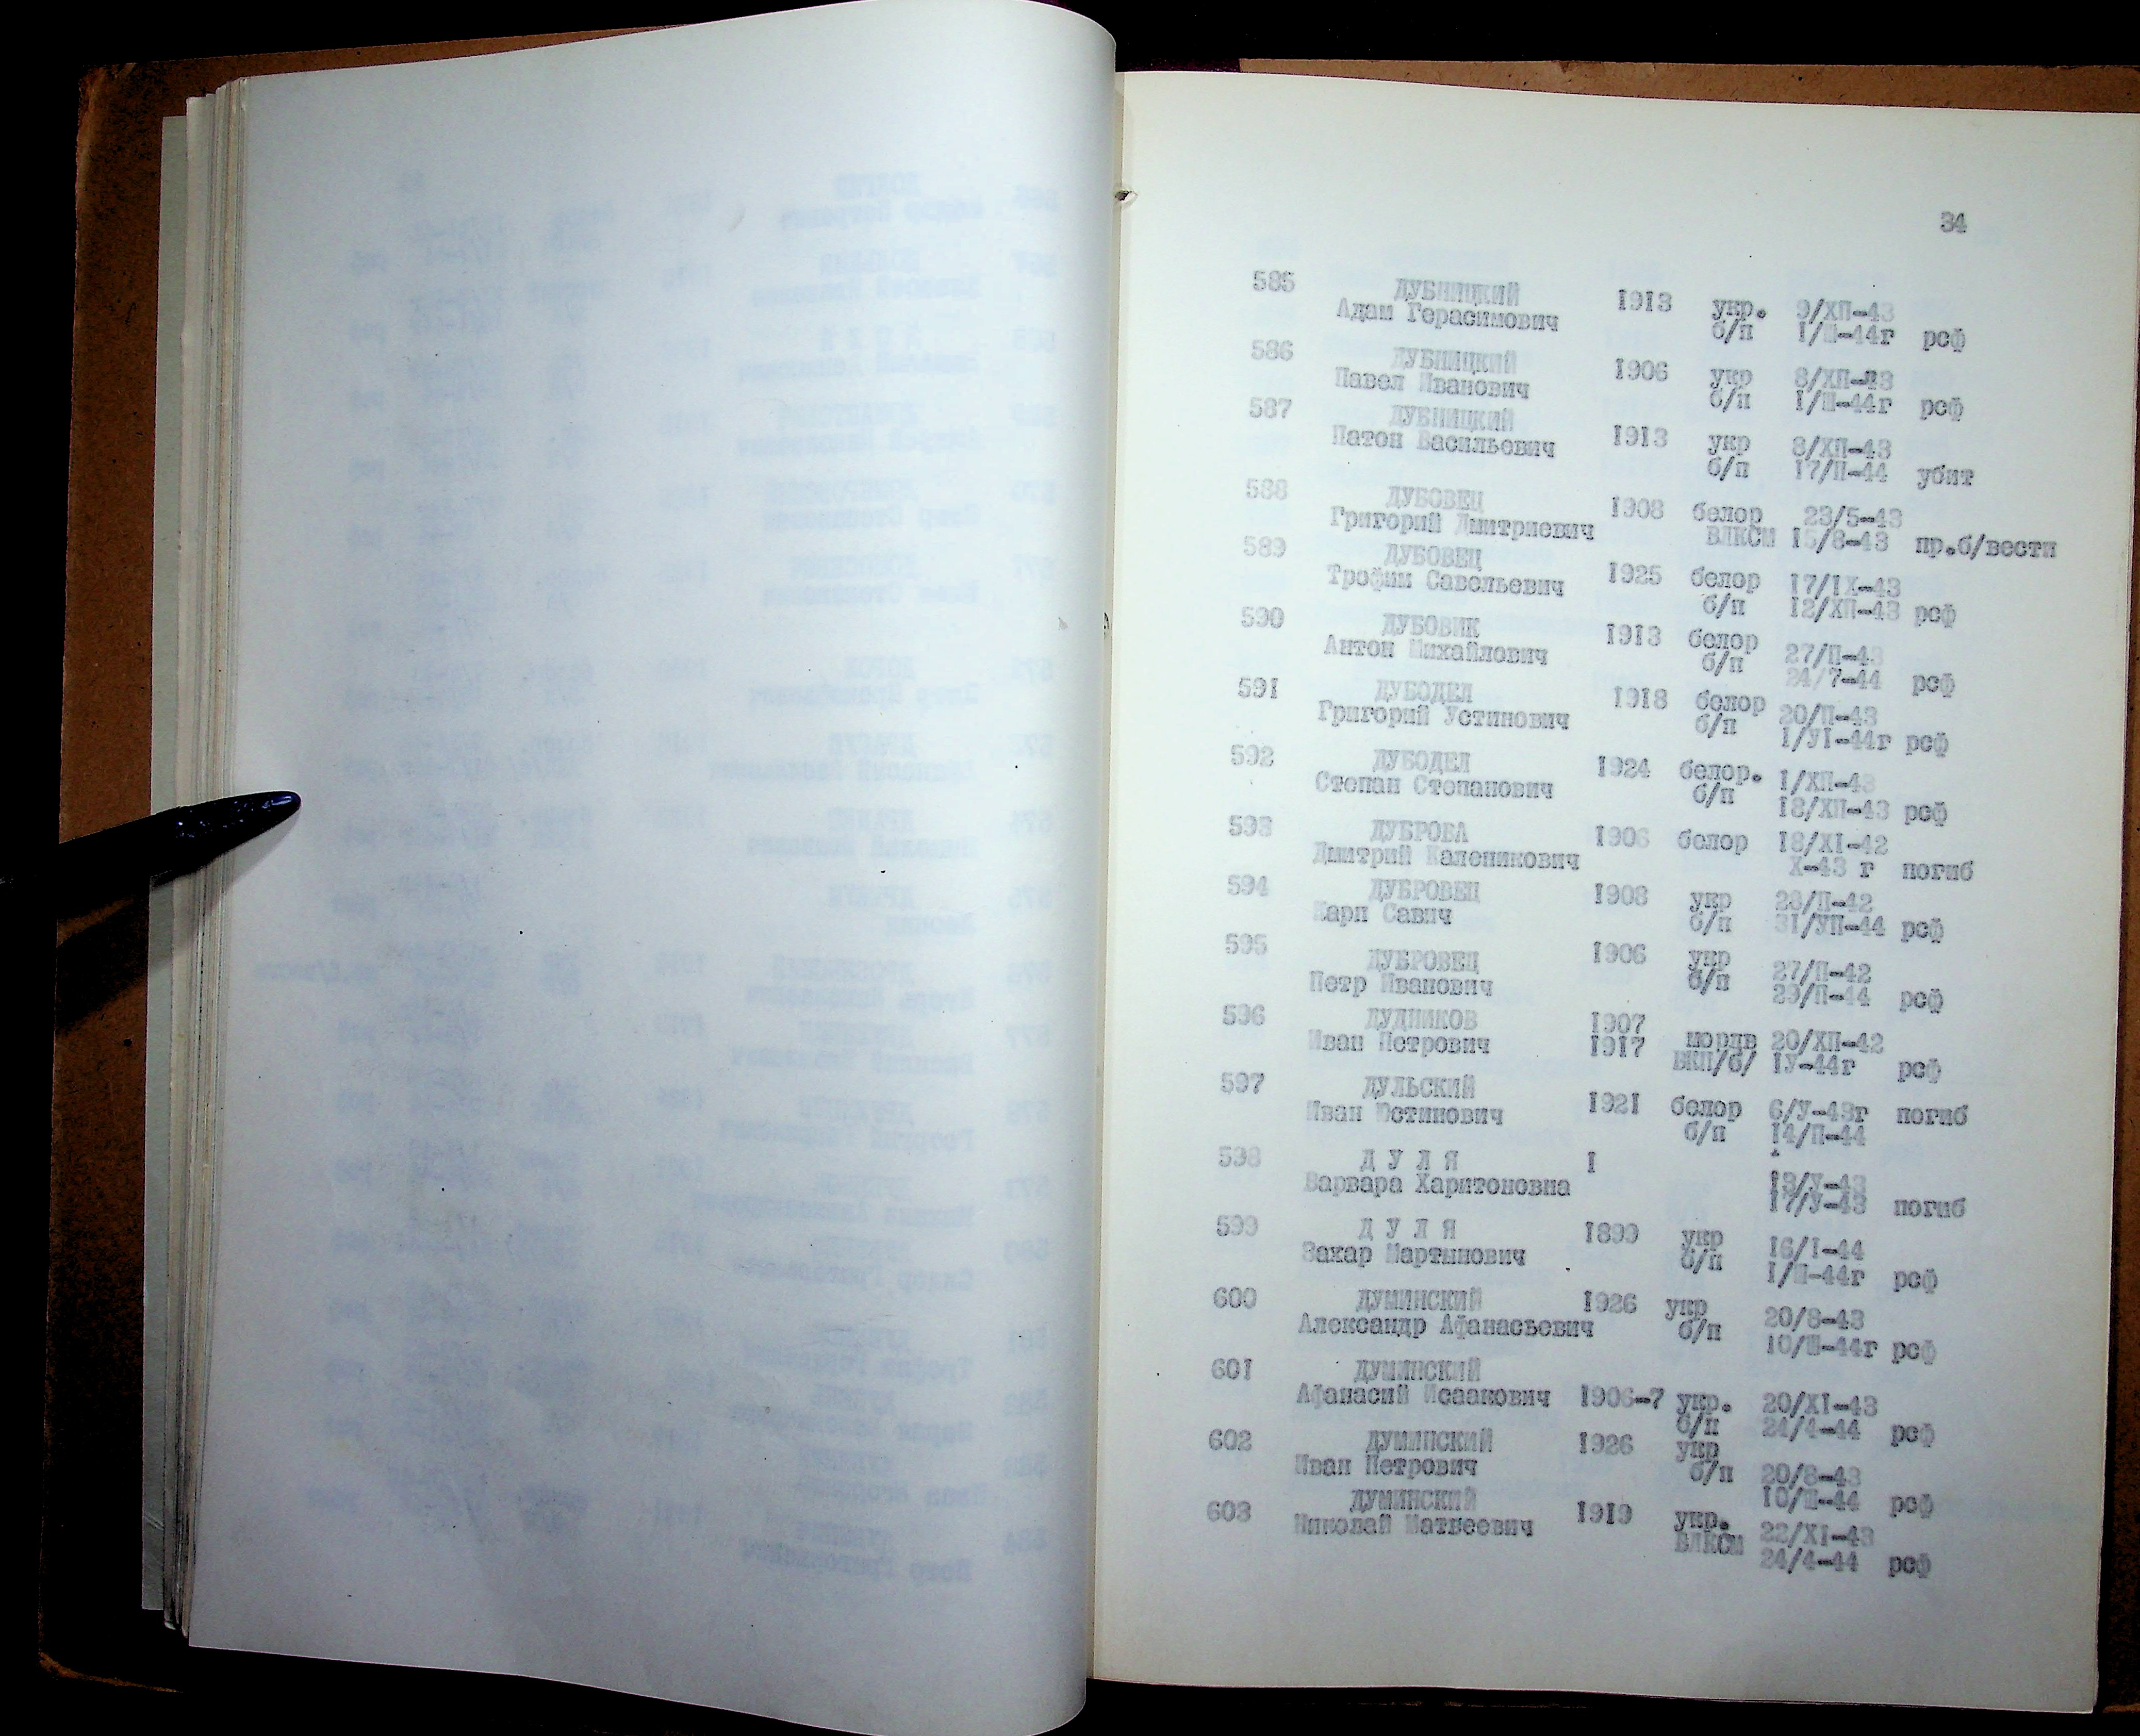 34
585 ДУБНИЦКИЙ 1913 укр. 9/ХП-43
Адам Герасимович б/п I/Ш-44г рсф
586 ДУБНИЦКИЙ 1906 укр 8/ХП-43
Павел Иванович б/п I/Ш-44г рсф
587 ДУБНИЦКИЙ
Патон Васильевич 1913 укр 8/ХП-43
б/п 17/П-44 убит
588 ДУБОВЕЦ 1908 белор 23/5-43
Григорий Дмитриевич ВЛКСМ 15/8-43 пр.б/вести
589 ДУБОВЕЦ
Трофим Савельевич 1925 белор 17/IX-43
б/п 12/ХП-43 рсф
590 ДУБОВИК 1913 белор 27/П-43
Антон Михайлович б/п 24/7-44 рсф
591 ДУБОДЕЛ 1918 белор 20/П-43
Григорий Устинович б/п I/УI-44г рсф
592 ДУБОДЕЛ 1924 белор. I/ХП-43
Степан Степанович б/п 18/ХП-43 рсф
593 ДУБРОВА 1906 белор 18/XI-42
Дмитрий Каленикович Х-43 г погиб
594 ДУБРОВЕЦ 1908 укр 28/П-42
Карп Савич б/п 31/УП-44 рсф
595 ДУБРОВЕЦ 1906 укр 27/П-42
Петр Иванович б/п 29/П-44 рсф
596 ДУДНИКОВ 1907 мордв 20/ХП-42
Иван Петрович 1917 ВКП/б/ IУ-44г рсф
597 ДУЛЬСКИЙ
Иван Юстинович 1921 белор 6/У-43г погиб
б/п 14/П-44
598 Д У Л Я I 13/У-43
Варвара Харитоновна 17/У-43 погиб
599 Д У Л Я 1899 укр 16/I-44
Захар Мартынович б/п I/Ш-44г рсф
600 ДУМИНСКИЙ 1926 укр 20/8-43
Александр Афанасьевич б/п 10/Ш-44г рсф
601 ДУМИНСКИЙ
Афанасий Исаакович 1906-7 укр. 20/XI-43
б/п 24/4-44 рсф
602 ДУМИНСКИЙ 1926 укр 20/8-43
Иван Петрович б/п 10/Ш-44 рсф
603 ДУМИНСКИЙ 1919 укр. 22/XI-43
Николай Матвеевич ВЛКСМ 24/4-44 рсф